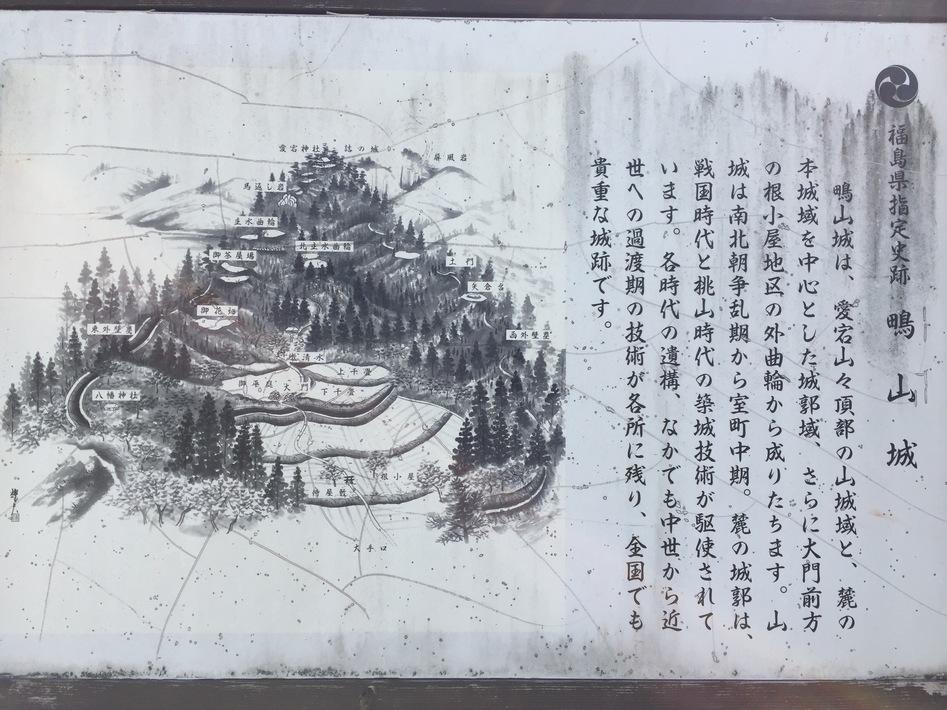 福島県指定史跡 鴫山城
鴫山城は、愛宕山々頂部の山城域と、麓の
本城域を中心とした城郭域、さらに大門前方
の根小屋地区の外曲輪から成りたちます。山
城は南北朝争乱期から室町中期。麓の城郭は、
戦国時代と桃山時代の築城技術が駆使されて
います。各時代の遺構、なかでも中世から近
世への過渡期の技術が各所に残り、全国でも
貴重な城跡です。
愛宕神社
詰の城
屏風岩
馬返し岩
主水曲輪
北主水曲輪
御茶屋場
土門
矢倉台
御花畑
東外壁塁
西外壁塁
清水
上千畳
御平庭
大門
下千畳
八幡神社
根小屋
侍屋敷
大手口